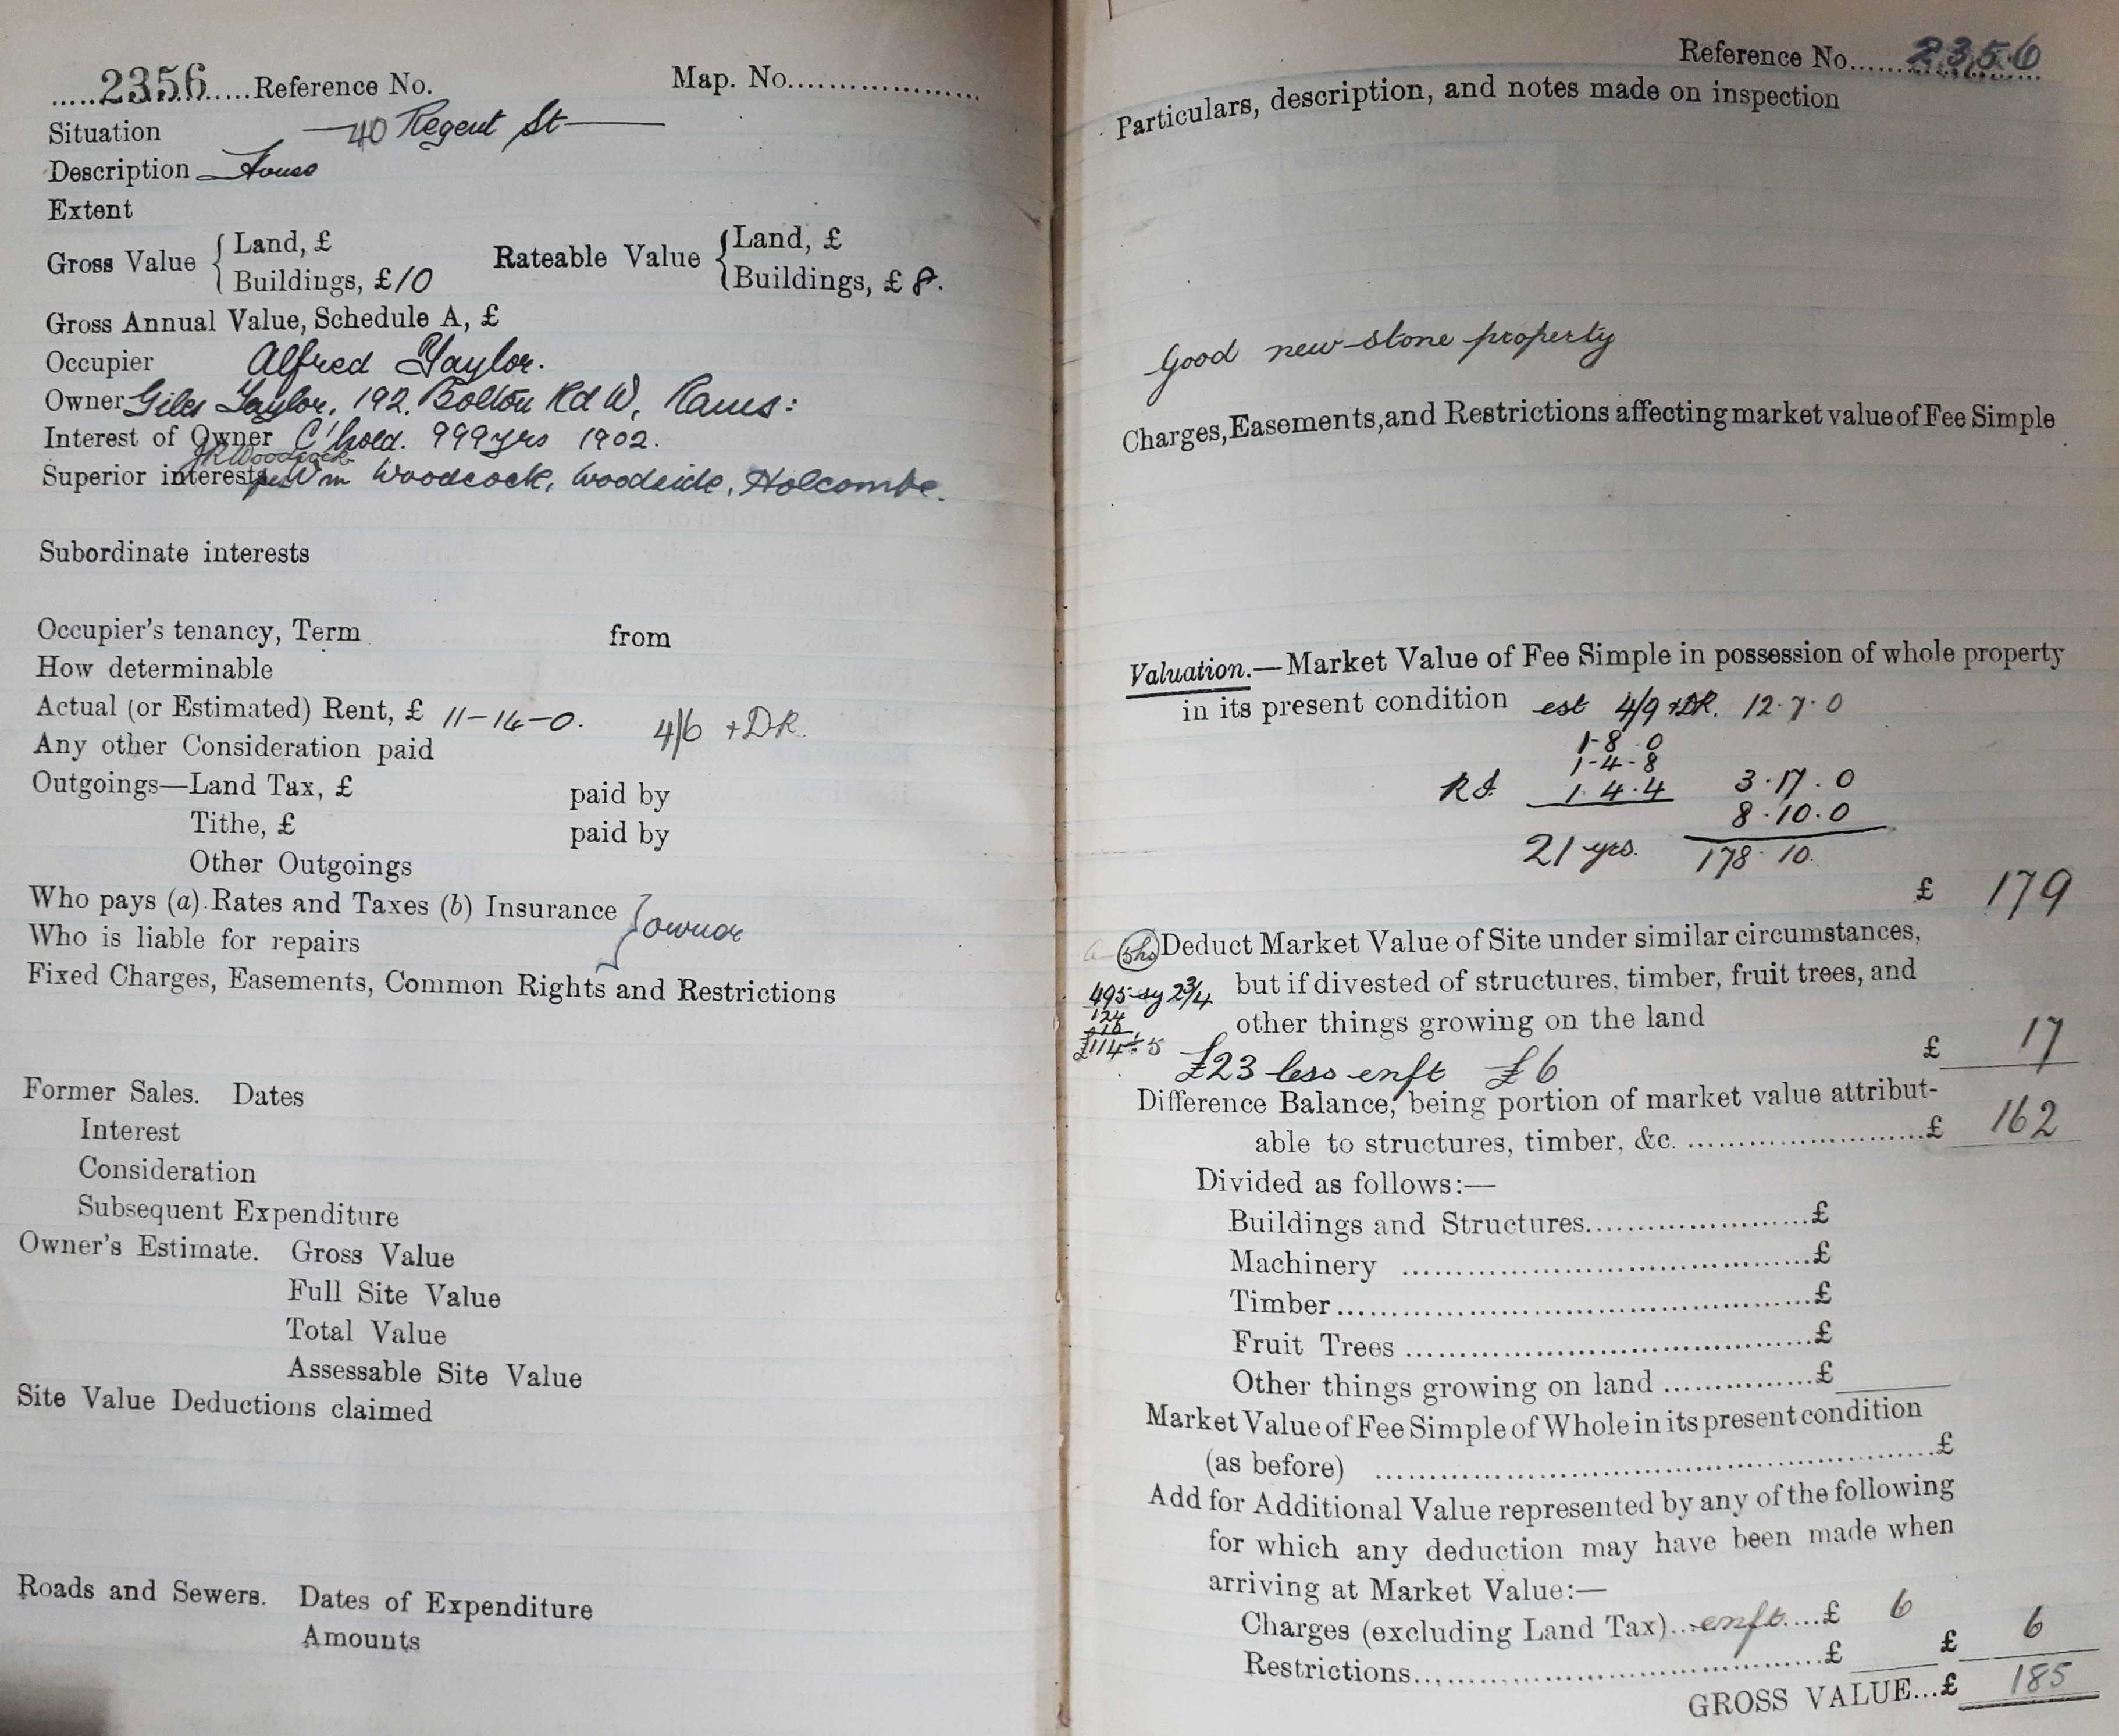 .....2356.....Reference No. Map. No....................
Situation — 40 Regent St —
Description — House
Extent
Gross Value { Land, £ Rateable Value { Land, £
Buildings, £10 Buildings, £ 8.
Gross Annual Value, Schedule A, £
Occupier Alfred Taylor.
Owner Giles Taylor, 192, Bolton Rd W, Rams:
Interest of Owner C'hold. 999yrs 1902.
JR Woodcock
Superior interests per Wm Woodcock, Woodside, Holcombe.
Subordinate interests
Occupier's tenancy, Term from
How determinable
Actual (or Estimated) Rent, £ 11-14-0. 4/6 + DR.
Any other Consideration paid
Outgoings—Land Tax, £ paid by
Tithe, £ paid by
Other Outgoings
Who pays (a) Rates and Taxes (b) Insurance } owner
Who is liable for repairs
Fixed Charges, Easements, Common Rights and Restrictions
Former Sales. Dates
Interest
Consideration
Subsequent Expenditure
Owner's Estimate. Gross Value
Full Site Value
Total Value
Assessable Site Value
Site Value Deductions claimed
Roads and Sewers. Dates of Expenditure
Amounts
Reference No. 2356
Particulars, description, and notes made on inspection
Good new-stone property
Charges, Easements, and Restrictions affecting market value of Fee Simple
Valuation.—Market Value of Fee Simple in possession of whole property
in its present condition est 4/9 + DR. 12.7.0
1-8.0
1-4-8
1.4.4 3.17.0
8.10.0
21 yrs. 178.10.
£ 179
(5hs) Deduct Market Value of Site under similar circumstances,
but if divested of structures, timber, fruit trees, and
495 sy 2¾
other things growing on the land
124
£114÷5 £ 17
£23 less enft £6
Difference Balance, being portion of market value attribut-
able to structures, timber, &c. ........................£ 162
Divided as follows:—
Buildings and Structures......................£
Machinery ......................................£
Timber..............................................£
Fruit Trees ......................................£
Other things growing on land ................£
Market Value of Fee Simple of Whole in its present condition
(as before) ........................................................£
Add for Additional Value represented by any of the following
for which any deduction may have been made when
arriving at Market Value:—
Charges (excluding Land Tax)...enft....£ 6
£ 6
Restrictions........................................£
GROSS VALUE...£ 185